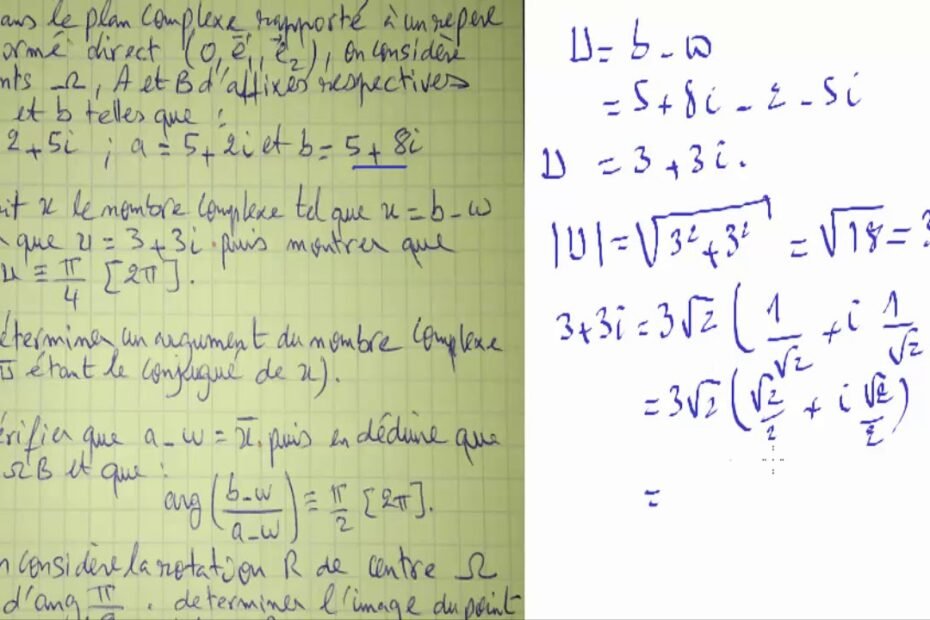 ans le plan complexe rapporté à un repère
ormé direct (O, e₁, e₂), on considère
nts Ω, A et B d'affixes respectives
et b telles que :
2+5i ; a = 5+2i et b = 5+8i
it u le nombre complexe tel que u = b-w
que u = 3+3i puis montrer que
u ≡ π/4 [2π].
éterminer un argument du nombre complexe
u̅ étant le conjugué de u).
érifier que a-w = u̅. puis en déduire que
ΩB et que :
arg((b-w)/(a-w)) ≡ π/2 [2π].
n considère la rotation R de centre Ω
d'ang π/2 . determiner l'image du point
U = b-w
= 5+8i-2-5i
U = 3+3i.
|U| = √(3²+3²) = √18 = 3
3+3i = 3√2 (1/√2 + i 1/√2
= 3√2 (√2/2 + i √2/2)
=